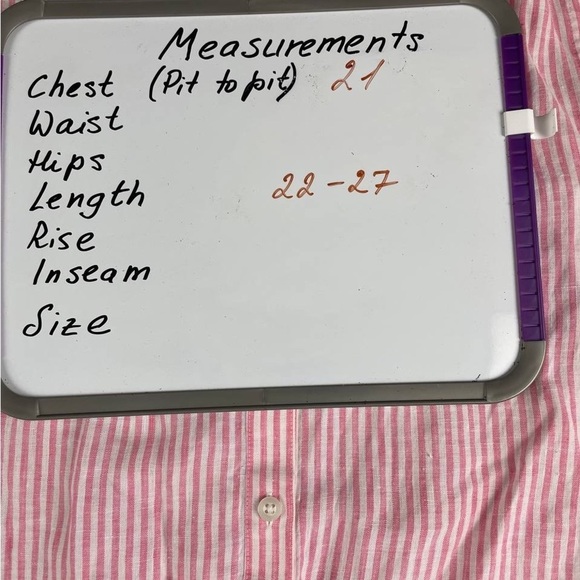 Measurements
Chest (Pit to pit) 21
Waist
Hips
Length 22-27
Rise
Inseam
Size